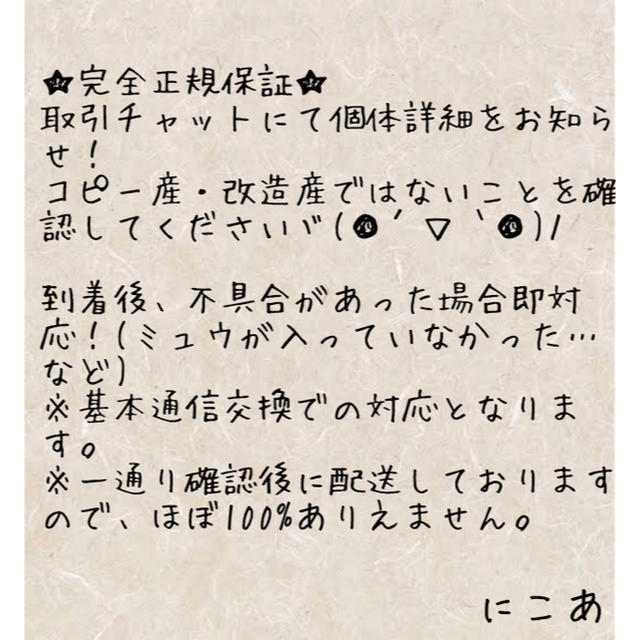 ★完全正規保証★
取引チャットにて個体詳細をお知ら
せ！
コピー産・改造産ではないことを確
認してくださいヾ(๑╹▽╹๑)ﾉ
到着後、不具合があった場合即対
応！(ミュウが入っていなかった…
など)
※基本通信交換での対応となりま
す。
※一通り確認後に配送しております
ので、ほぼ100%ありえません。
にこあ